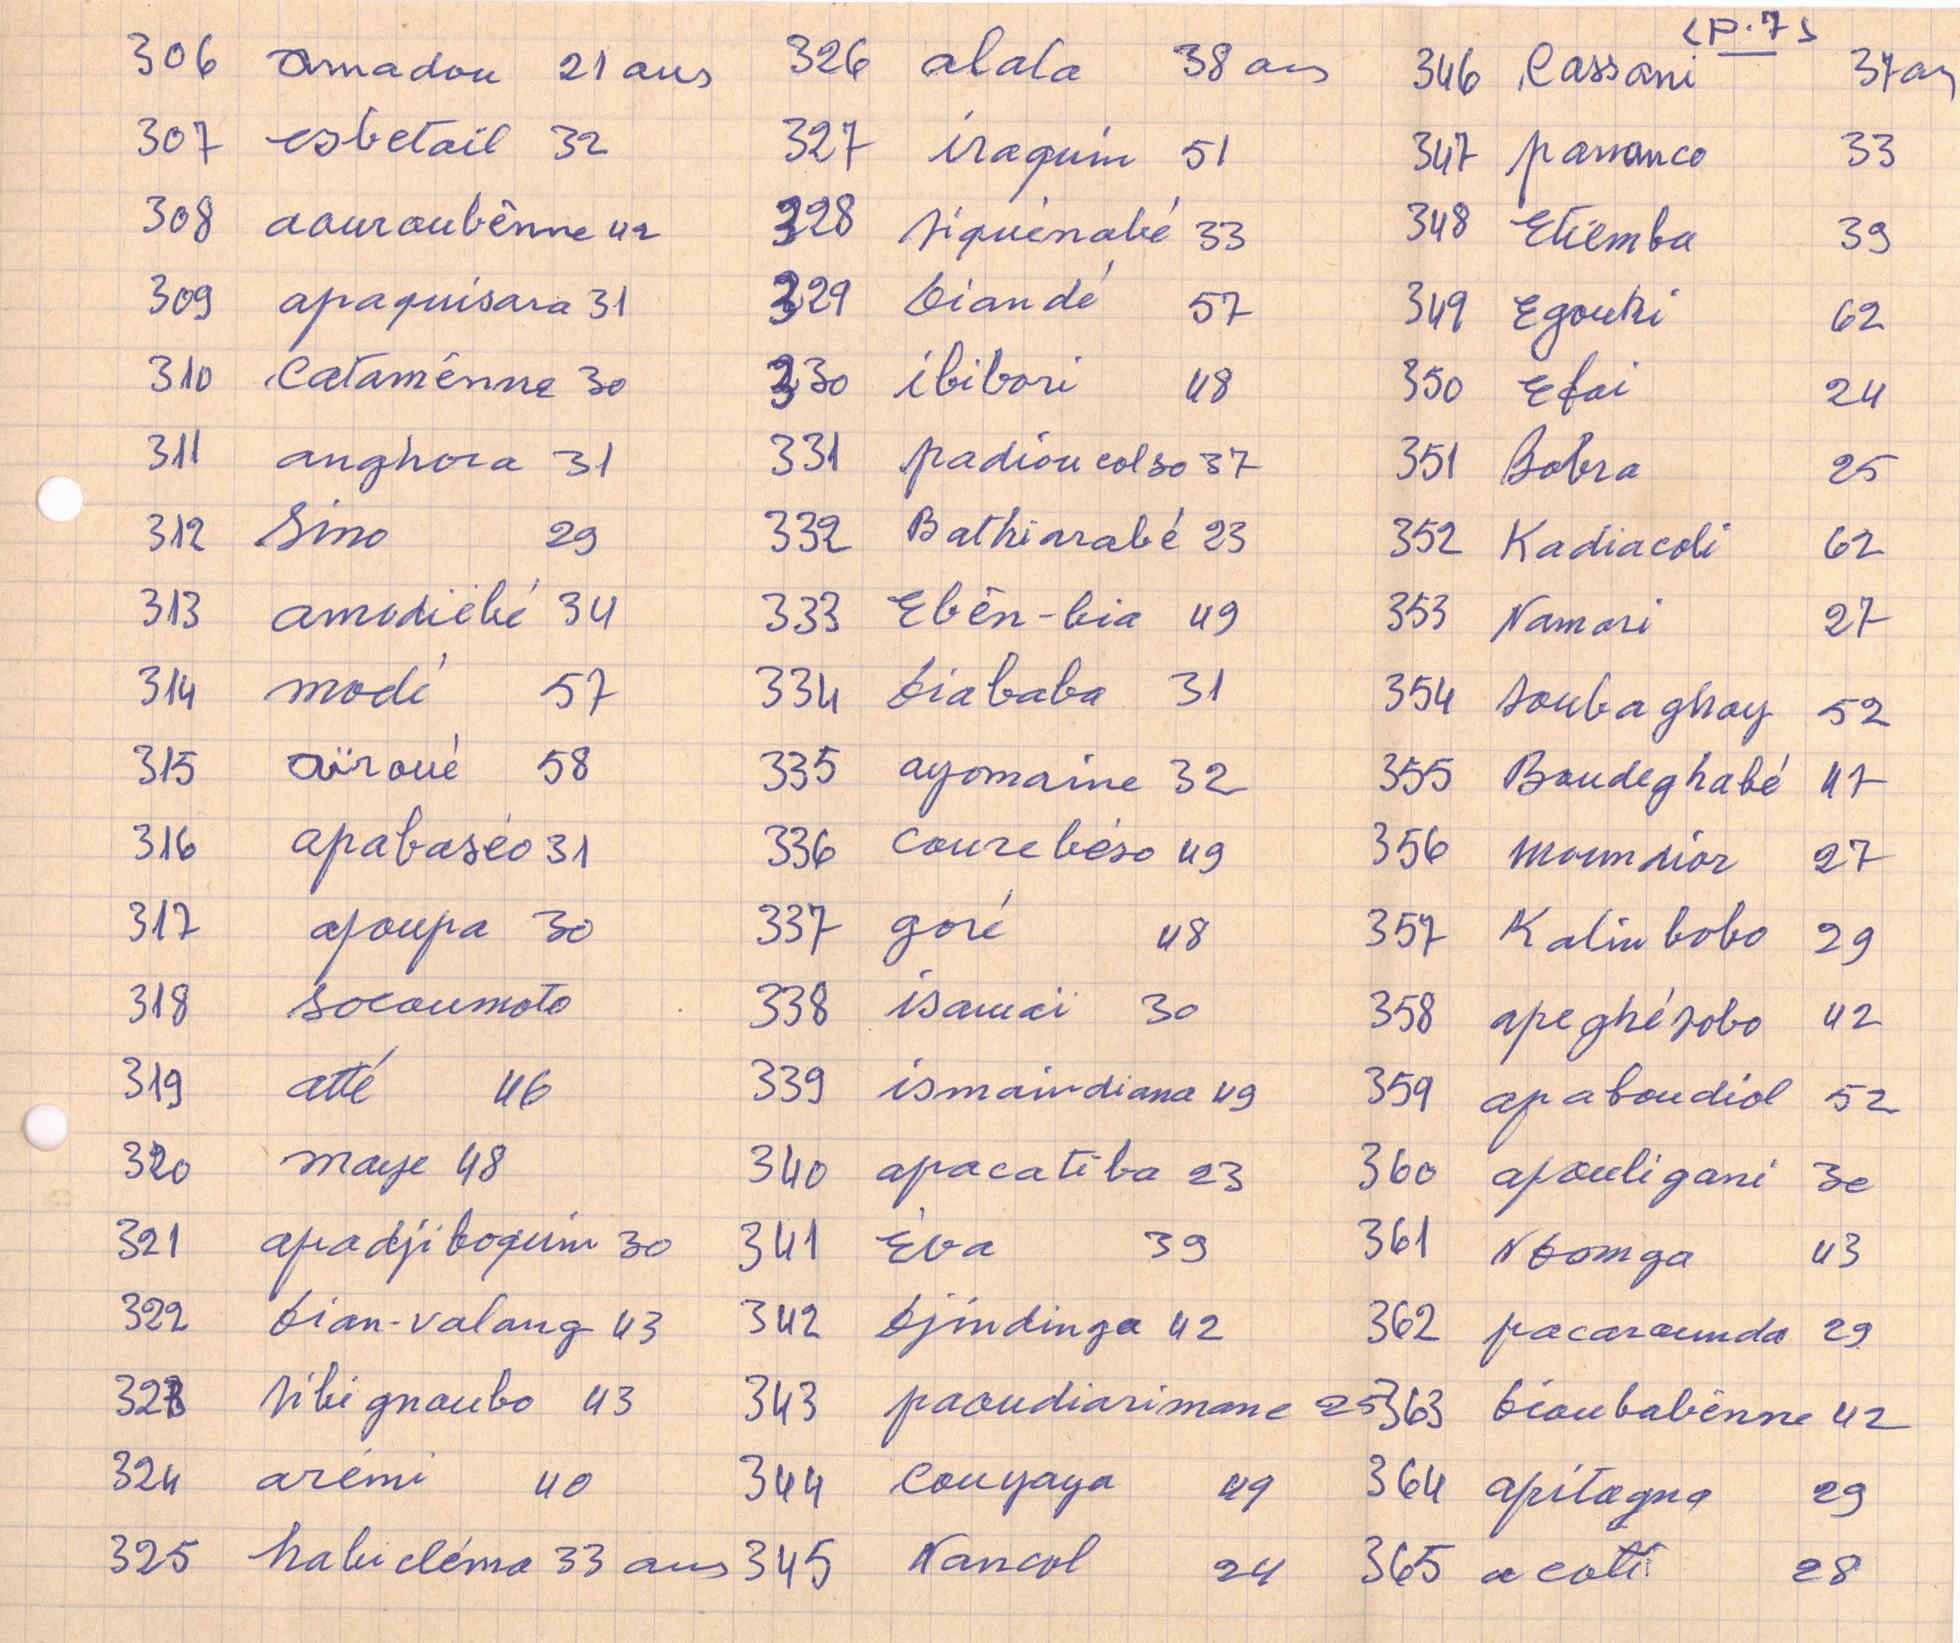 (p.7)
306 amadou 21 ans
307 esbetail 32
308 aouroubênne 42
309 apaquisara 31
310 Cataménne 30
311 anghora 31
312 Sino 29
313 amodiébé 34
314 modé 57
315 aïroué 58
316 apabaséo 31
317 apoupa 30
318 socoumoto
319 atté 46
320 maye 48
321 apadjiboquin 30
322 bian-valang 43
323 sibignoubo 43
324 arémi 40
325 habicléma 33 ans
326 alala 38 ans
327 iraquin 51
328 siquénabé 33
329 biandé 57
330 ibibori 48
331 padioucolso 37
332 Bathiarabé 23
333 Ebên-bia 49
334 biababa 31
335 ayomaine 32
336 courebéso 49
337 goré 48
338 isamaï 30
339 ismaindiana 49
340 apacatiba 23
341 Éba 39
342 bjindinga 42
343 paoudiarimane 25
344 couyaya 49
345 Nancol 24
346 Cassani 37 ans
347 pamanco 33
348 Etiemba 39
349 Egouki 62
350 Efai 24
351 Bobra 25
352 Kadiacoli 62
353 Namori 27
354 soubaghay 52
355 Boudeghabé 47
356 moumsior 27
357 Kalimbobo 29
358 apeghésobo 42
359 apaboudiol 52
360 apouligani 30
361 Nbomga 43
362 pacaraunda 29
363 bioubabênne 42
364 apitagna 29
365 acoti 28